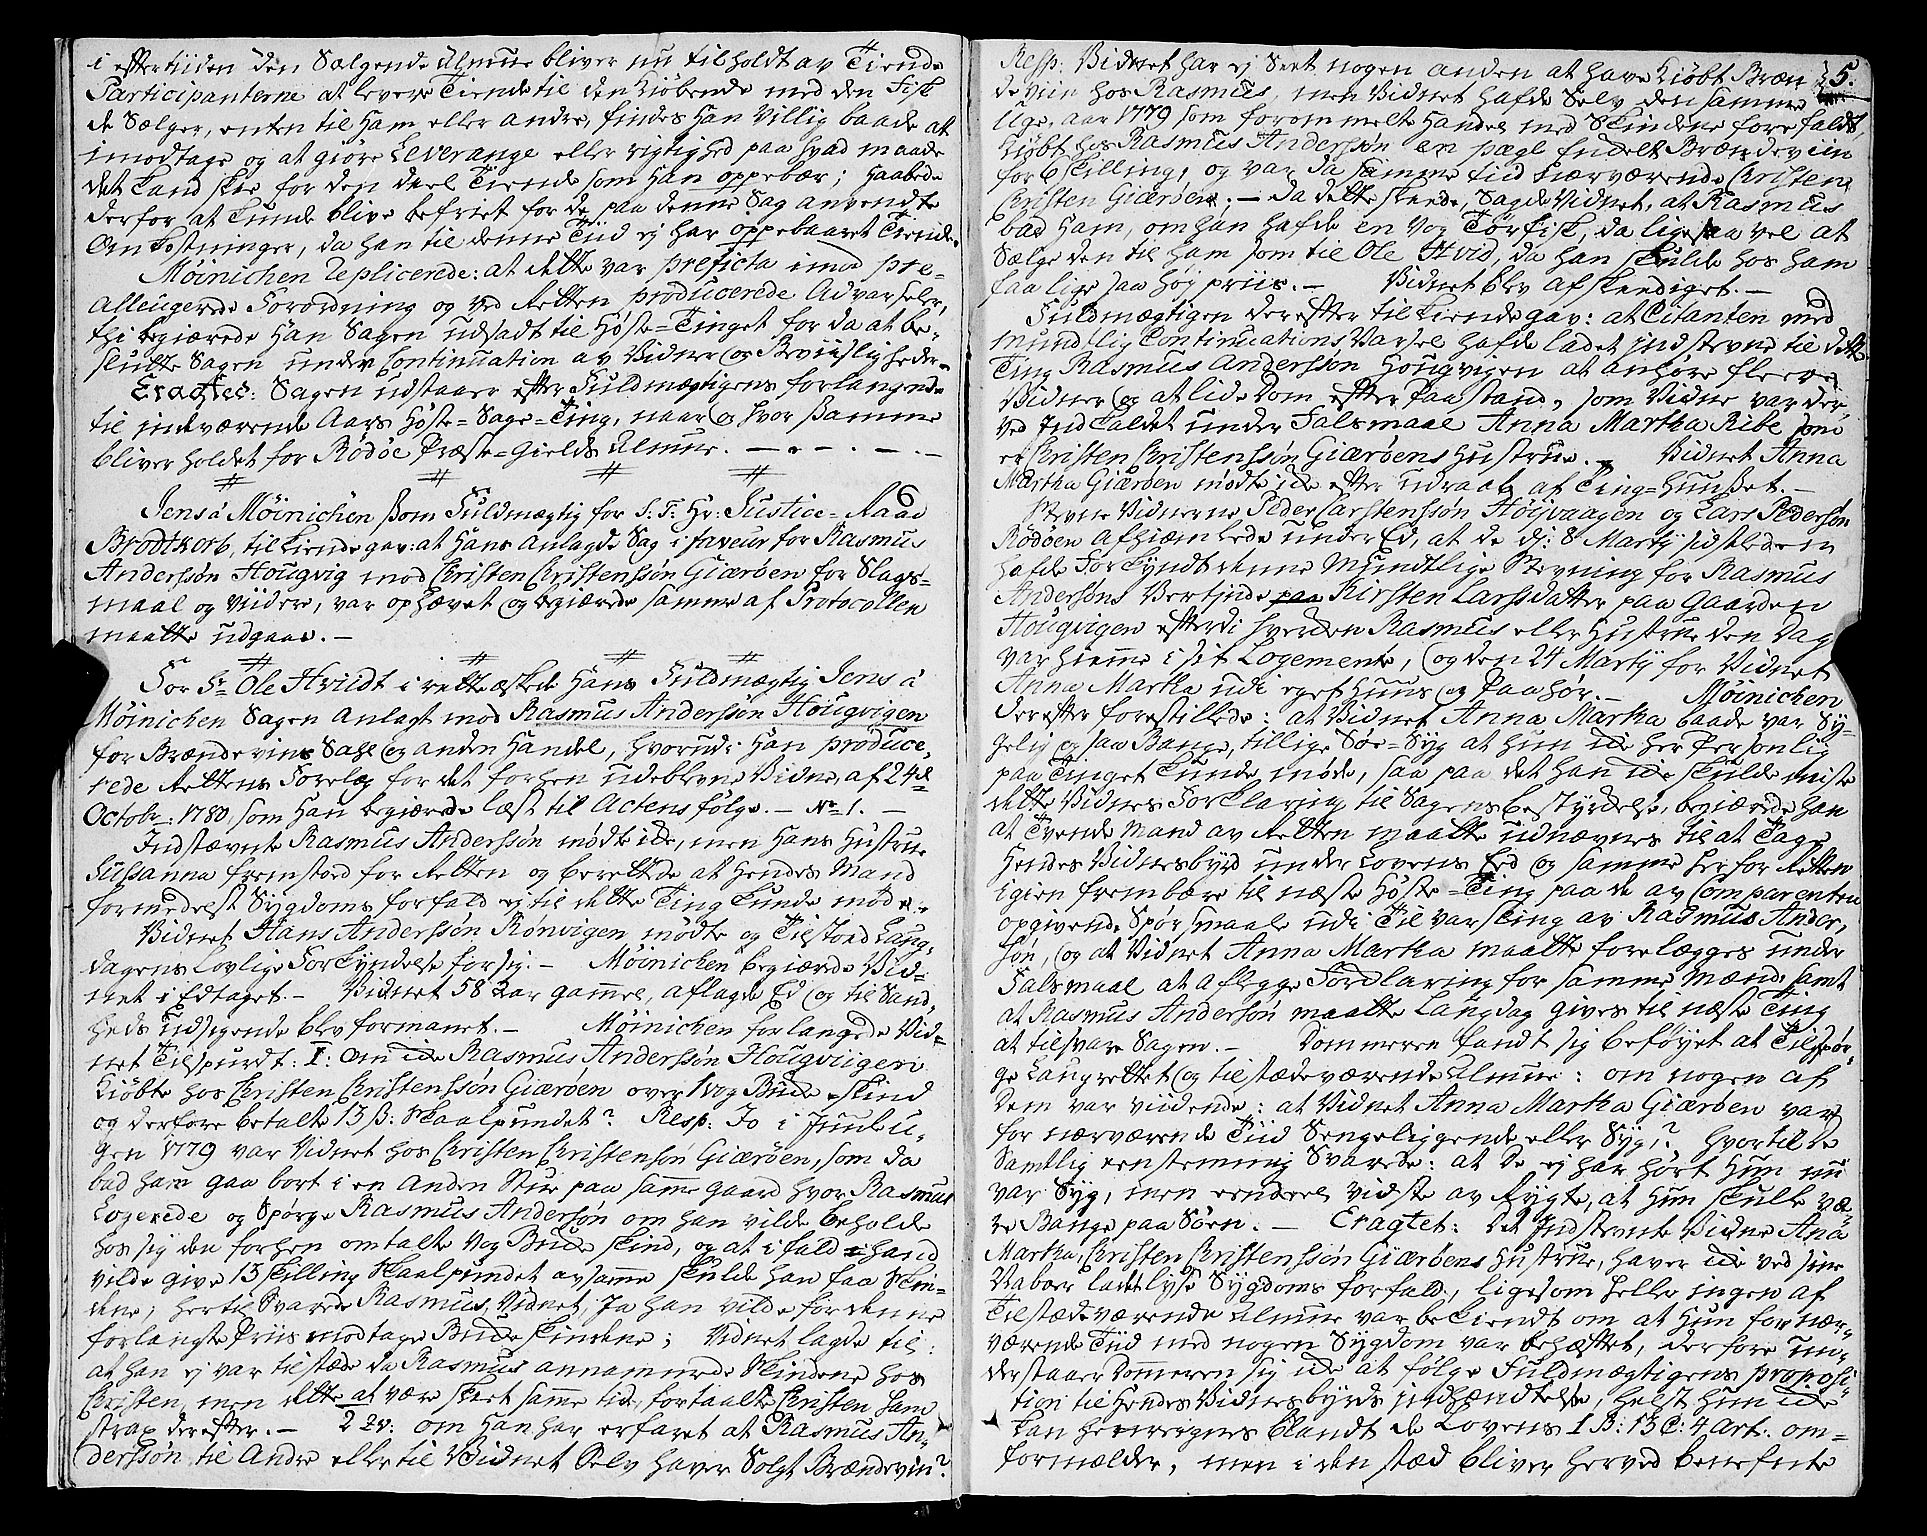 i eftertiiden den Sælgende Almue bliver nu tilholdt av Tiende
Participanterne at levere Tiende til den Kiøbende med den Fisk
de Sælger, enten til Ham eller andre, findes Han Villig baade at
imodtage og at giøre Leverange eller rigtighed paa hvad maade
det kand skee for den deel Tiende som Han oppebær; Haabede
derfor at kunde blive befriet for de paa denne Sag anvendte
Omkostninger, da han til denne Tiid ej har oppebaaret Tiende.
Møinichen Replicerede: at dette var preficta imod præ-
allengerede Forordning og ved Retten producerede Advarseler,
thi begiærede Han Sagen udsadt til Høste-Tinget for da at be-
slutte Sagen under Continuation av Vidner og Beviisligheder.
Eragtet: Sagen udstaaer efter Fuldmægtigens forlangende
til indeværende Aars Høste-Sage-Ting, naar og hvor Samme
bliver holdet for Rødøe Præste-Gields Almue. — . — . — . —
Jens á Møinichen som Fuldmægtig for S. T. Hr: Justice-Raad
Brodtkorb, tilkiendegav: at Hans Anlagde Sag i faveur for Rasmus
Anderssøn Hougvig mod Christen Christenssøn Giærøen for Slags-
maal og viidere, var ophævet og begiærede samme af Protocollen
maatte udgaae. —
For Sr Ole Hvidt i rette æskede Hans Fuldmægtig Jens á
Møinichen Sagen Anlagt mod Rasmus Anderssøn Hougvigen
for Brændeviins Sahl og anden Handel, hvorudi Han produce-
rede Rettens Forelæg for det forhen udeblevne Vidne af 24de
Octobr: 1780, som Han begiærede læst til Actens følge. — No 1. —
Indstævnte Rasmus Anderssøn mødte ikke, men Hans Hustrue
Susanna fremstoed for Retten og berettede at Hendes Mand
formedelst Sygdoms forfald ej til dette Ting kunde møde.
Vidnet Hans Anderssøn Rønvigen mødte og Tilstoed Laug-
dagens Lovlige Forkyndelse for sig. — Møinichen begiærede Vid-
net i Edtaget. — Vidnet 58 Aar gammel, aflagde Ed og til Sand-
heds Udsigende blev formanet. — Møinichen forlangede Vid-
net Tilspurdt: 1: Om ikke Rasmus Anderssøn Hougviigen
Kiøbte hos Christen Christenssøn Giærøen over 1 vog Bukke-Skind
og derfore betalte 13 ß: Skaalpundet? Resp: Jo i Juule U-
gen 1779 var Vidnet hos Christen Christensøn Giærøen, som da
bad ham gaa bort i en anden Stue paa samme gaard hvor Rasmus
Logerede og Spørge Rasmus Andersøn om han vilde beholde
hos sig den forhen omtalte Vog Bukke skind, og at i fald hand
vilde give 13 skilling Skaalpundet av samme skulde han faa Skin-
dene; hertil Svarede Rasmus, Vidnet, Ja han vilde for denne
forlangte Priis modtage Bukke skindene; Vidnet lagde til:
at han ej var tilstæde da Rasmus annammede Skindene hos
Christen, men dette at være skeet samme tid, fortaalte Christen ham
strax derefter. — 2 Qv: om Han har erfaret at Rasmus An-
derssøn til Andre eller til Vidnet Selv haver Solgt Brændeviin?
5.
Resp: Vidnet har ej Seet nogen anden at have Kiøbt Bræn-
deviin hos Rasmus, men Vidnet hafde Selv den samme
Uge, aar 1779 som forommelte Handel med Skindene forefaldt,
Kiøbt hos Rasmus Anderssøn en pægl Fudelt Brændeviin
for 6 skilling, og var da samme tiid nærværende Christen
Christen Giærøen. — Da dette skeede, Sagde Vidnet, at Rasmus
bad Ham, om han hafde en vog Tørfisk, da ligesaavel at
Sælge den til ham som til Ole Hvid, da han skulde hos ham
faa lige saa høy priis. — Vidnet blev afskediget. —
Fuldmægtigen derefter tilkiendegav: at Citanten med
mundtlig Continuations Varsel hafde ladet indstevne til dette
Ting Rasmus Anderssøn Hougvigen at anhøre fleere
Vidner og at lide Dom efter Paastand, som Vidne var der-
ved Indkaldet under Falsmaal Anna Martha Ribe som
er Christen Christenssøn Giærøens Hustrue. — Vidnet Anna
Martha Giærøen mødte ikke efter udraab af Ting-Huuset. —
Stevne Vidnerne Peder Carstenssøn Høijvaagen og Lars Pedersøn
Rødøen afhiemlede under Ed, at de d: 8 Marty sidstleden
hafde Forkyndt denne Mundtlige Stevning for Rasmus
Andersøns Vertinde paa Kirsten Larsdatter paa Gaarden
Hougvigen efterdi hverken Rasmus eller Hustrue den Dag
var hiemme i sit Logemente, og den 24 Marty for Vidnet
Anna Martha udi eget Huus og Paahør. — Møinichen
derefter forestillede: at Vidnet Anna Martha baade var Sy-
gelig og saa Bange, tillige Søe-Syg at hun ikke her Personlig
paa Tinget kunde møde, saa paa det han ikke skulde miste
dette Vidnes Forklaring til Sagens bestyrkelse, begiærede han
at Tvende Mænd av Retten maatte udnævnes til at Tage
Hendes Vidnesbyrd under Lovens Eed og samme her for Retten
igien frembære til næste Høste-Ting paa de av Comparenten
opgivende Spørsmaale udi Tilvarsling av Rasmus Ander-
søn, og at Vidnet Anna Martha maatte forelægges under
Falsmaal at aflegge Forklaring for samme Mænd, samt
at Rasmus Andersøn maatte Laugdag gives til næste Ting
at tilsvare Sagen. — Dommeren fandt sig beføyet at Tilspør-
ge Laugrettet og tilstædeværende Almue: om nogen af
dem var viidende: at Vidnet Anna Martha Giærøen var
for nærværende Tiid Sengeliggende eller Syg? hvortil de
Samtlig eenstemmig Svarede: at de ej har hørt Hun nu
var Syg, men eendeel vidste av Rygte, at Hun skulle væ-
re Bange paa Søen. — Eragtet: Det Indstevnte Vidne Anna
Martha, Christen Christenssøn Giærøens Hustrue, haver ikke ved sine
Naboer ladet lyse Sygdoms forfald, ligesom heller ingen af
Tilstædeværende Almue var bekiendt om at Hun for nær-
værende Tiid med nogen Sygdom var behæftet, derfore un-
derstaaer Dommeren sig ikke at følge Fuldmægtigens proposi-
tion til Hendes Vidnesbyrds indhændtelse, helst Hun ikke
kan henreignes blandt de Lovens 1 B: 13 C: 4 Art: om-
formelder, men i den stæd bliver herved benefnte